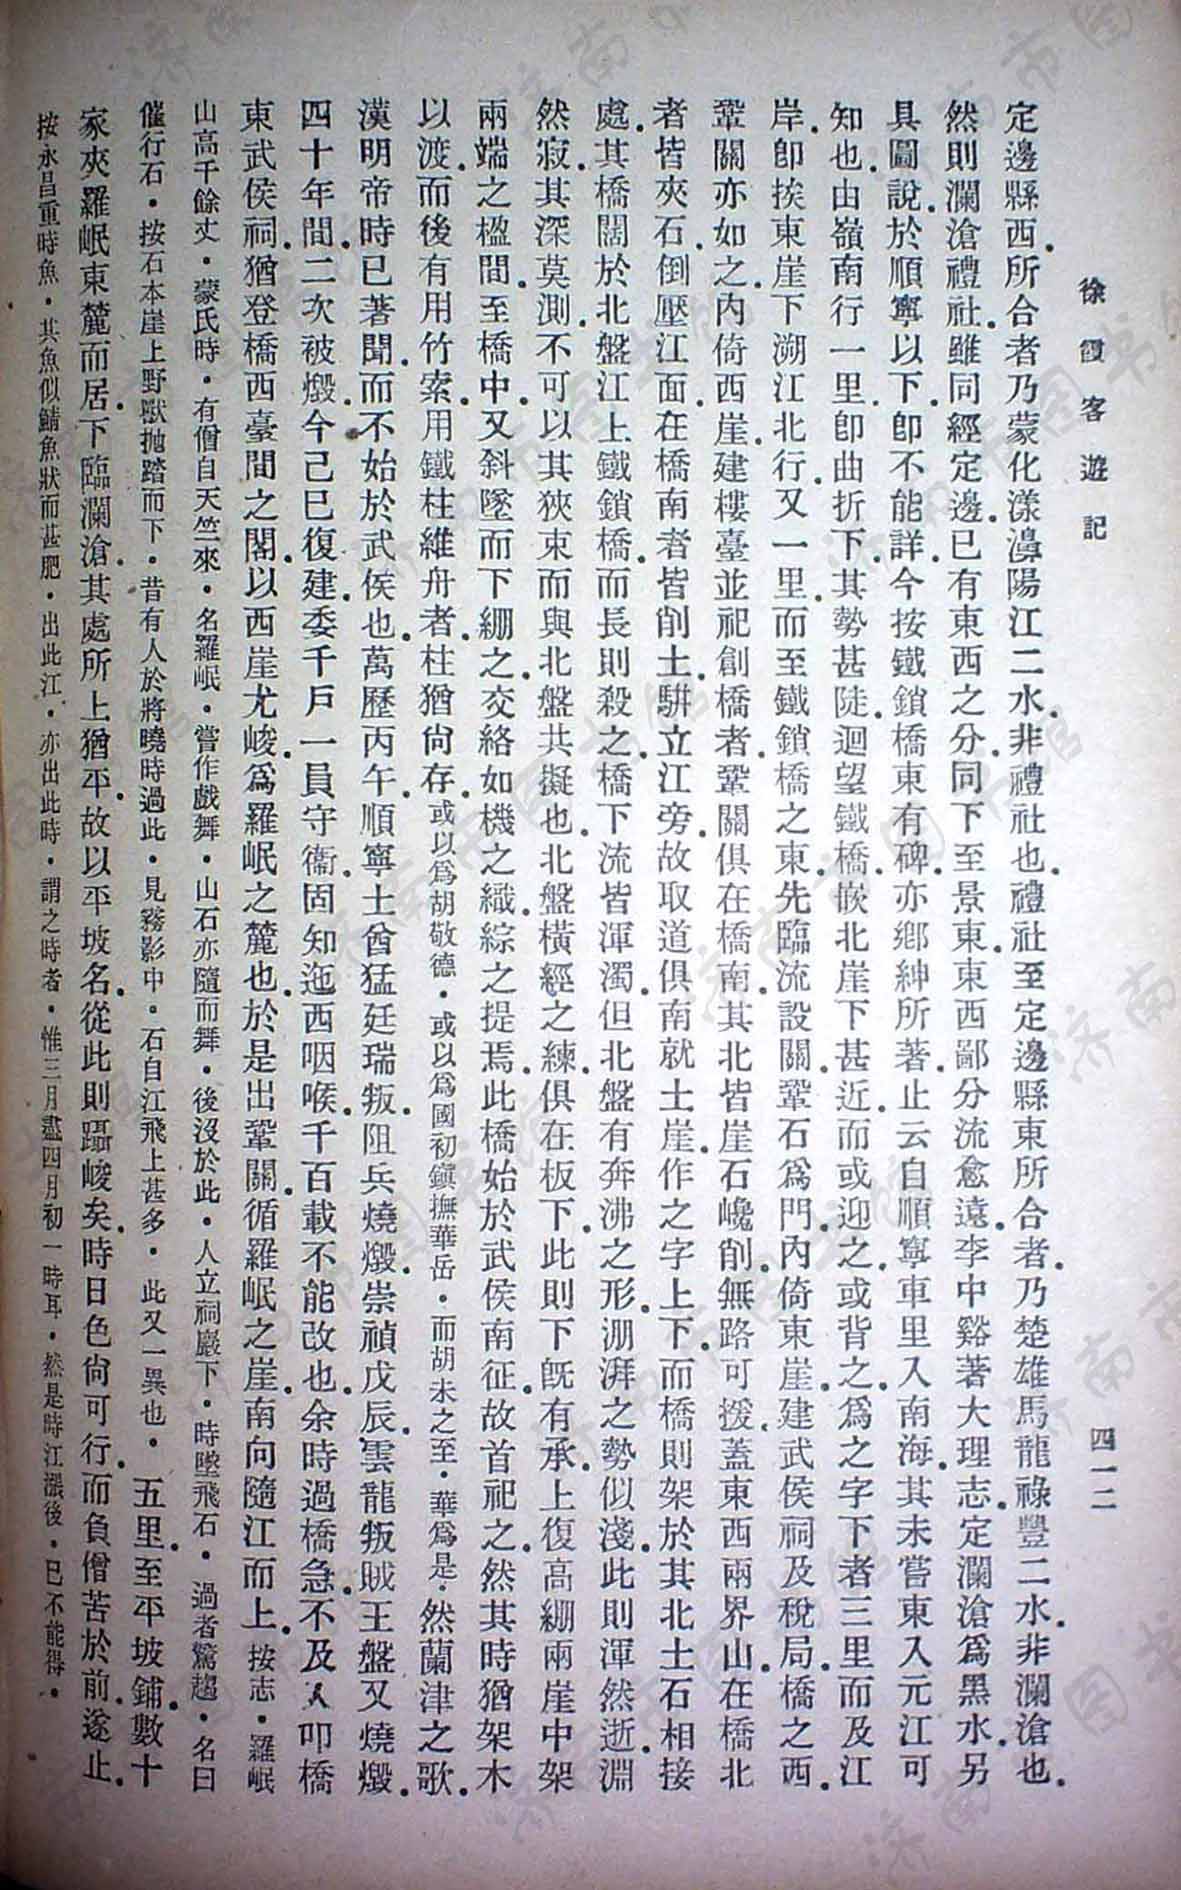 徐霞客遊記
四一二
定邊縣西．所合者乃蒙化漾濞陽江二水．非禮社也．禮社至定邊縣東所合者．乃楚雄馬龍祿豐二水．非瀾滄也．
然則瀾滄禮社．雖同經定邊．已有東西之分．同下至景東．東西鄙分流愈遠．李中谿著大理志．定瀾滄爲黑水．另
具圖說．於順寧以下．卽不能詳．今按鐵鎖橋東有碑．亦鄉紳所著．止云自順寧車里入南海．其未嘗東入元江可
知也．由嶺南行一里．卽曲折下．其勢甚陡．迴望鐵橋．嵌北崖下甚近．而或迎之．或背之．爲之字下者三里．而及江
岸．卽挨東崖下溯江北行．又一里．而至鐵鎖橋之東．先臨流設關．鞏石爲門．內倚東崖．建武侯祠及稅局．橋之西．
鞏關亦如之．內倚西崖．建樓臺並祀創橋者．鞏關俱在橋南．其北皆崖石巉削．無路可援．蓋東西兩界山．在橋北
者皆夾石．倒壓江面．在橋南者皆削土．駢立江旁．故取道俱南就土崖．作之字上下．而橋則架於其北土石相接
處．其橋闊於北盤江上鐵鎖橋．而長則殺之．橋下流皆渾濁．但北盤有奔沸之形．淜湃之勢似淺．此則渾然逝．淵
然寂．其深莫測．不可以其狹束而與北盤共擬也．北盤橫經之練．俱在板下．此則下旣有承．上復高綳兩崖中架
兩端之楹間．至橋中．又斜墜而下綳之．交絡如機之織．綜之提焉．此橋始於武侯南征．故首祀之．然其時猶架木
以渡．而後有用竹索．用鐵柱維舟者．柱猶尙存．或以爲胡敬德．或以爲國初鎭撫華岳．而胡未之至．華爲是．然蘭津之歌．
漢明帝時已著聞．而不始於武侯也．萬歷丙午．順寧土酋猛廷瑞叛．阻兵燒燬．崇禎戊辰．雲龍叛賊王盤又燒燬．
四十年間．二次被燬．今己巳復建．委千戶一員守衞．固知迤西咽喉．千百載不能改也．余時過橋急．不及入叩橋
東武侯祠．猶登橋西臺間之閣．以西崖尤峻．爲羅岷之麓也．於是出鞏關．循羅岷之崖．南向隨江而上．按志．羅岷
山高千餘丈．蒙氏時．有僧自天竺來．名羅岷．嘗作戲舞．山石亦隨而舞．後沒於此．人立祠巖下．時墜飛石．過者驚趨．名曰
催行石．按石本崖上野獸拋踏而下．昔有人於將曉時過此．見霧影中．石自江飛上甚多．此又一異也．五里至平坡鋪．數十
家夾羅岷東麓而居．下臨瀾滄．其處所上猶平．故以平坡名．從此則躡峻矣．時日色尙可行．而負僧苦於前．遂止．
按永昌重時魚．其魚似鯖魚狀而甚肥．出此江．亦出此時．謂之時者．惟三月盡四月初一時耳．然是時江漲後．已不能得．